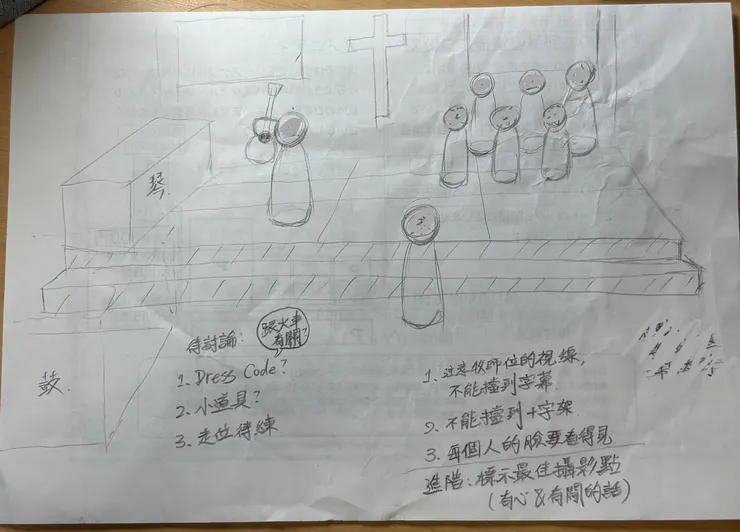 琴
鼓.
待討論:
跟火車
有關?
1. Dress Code?
2. 小道具?
3. 走位待練
1. 注意牧師位的視線,
不能擋到字幕
2. 不能擋到十字架
3. 每個人的臉要看得見
進階: 標示最佳攝影點
(有心&有閒的話)